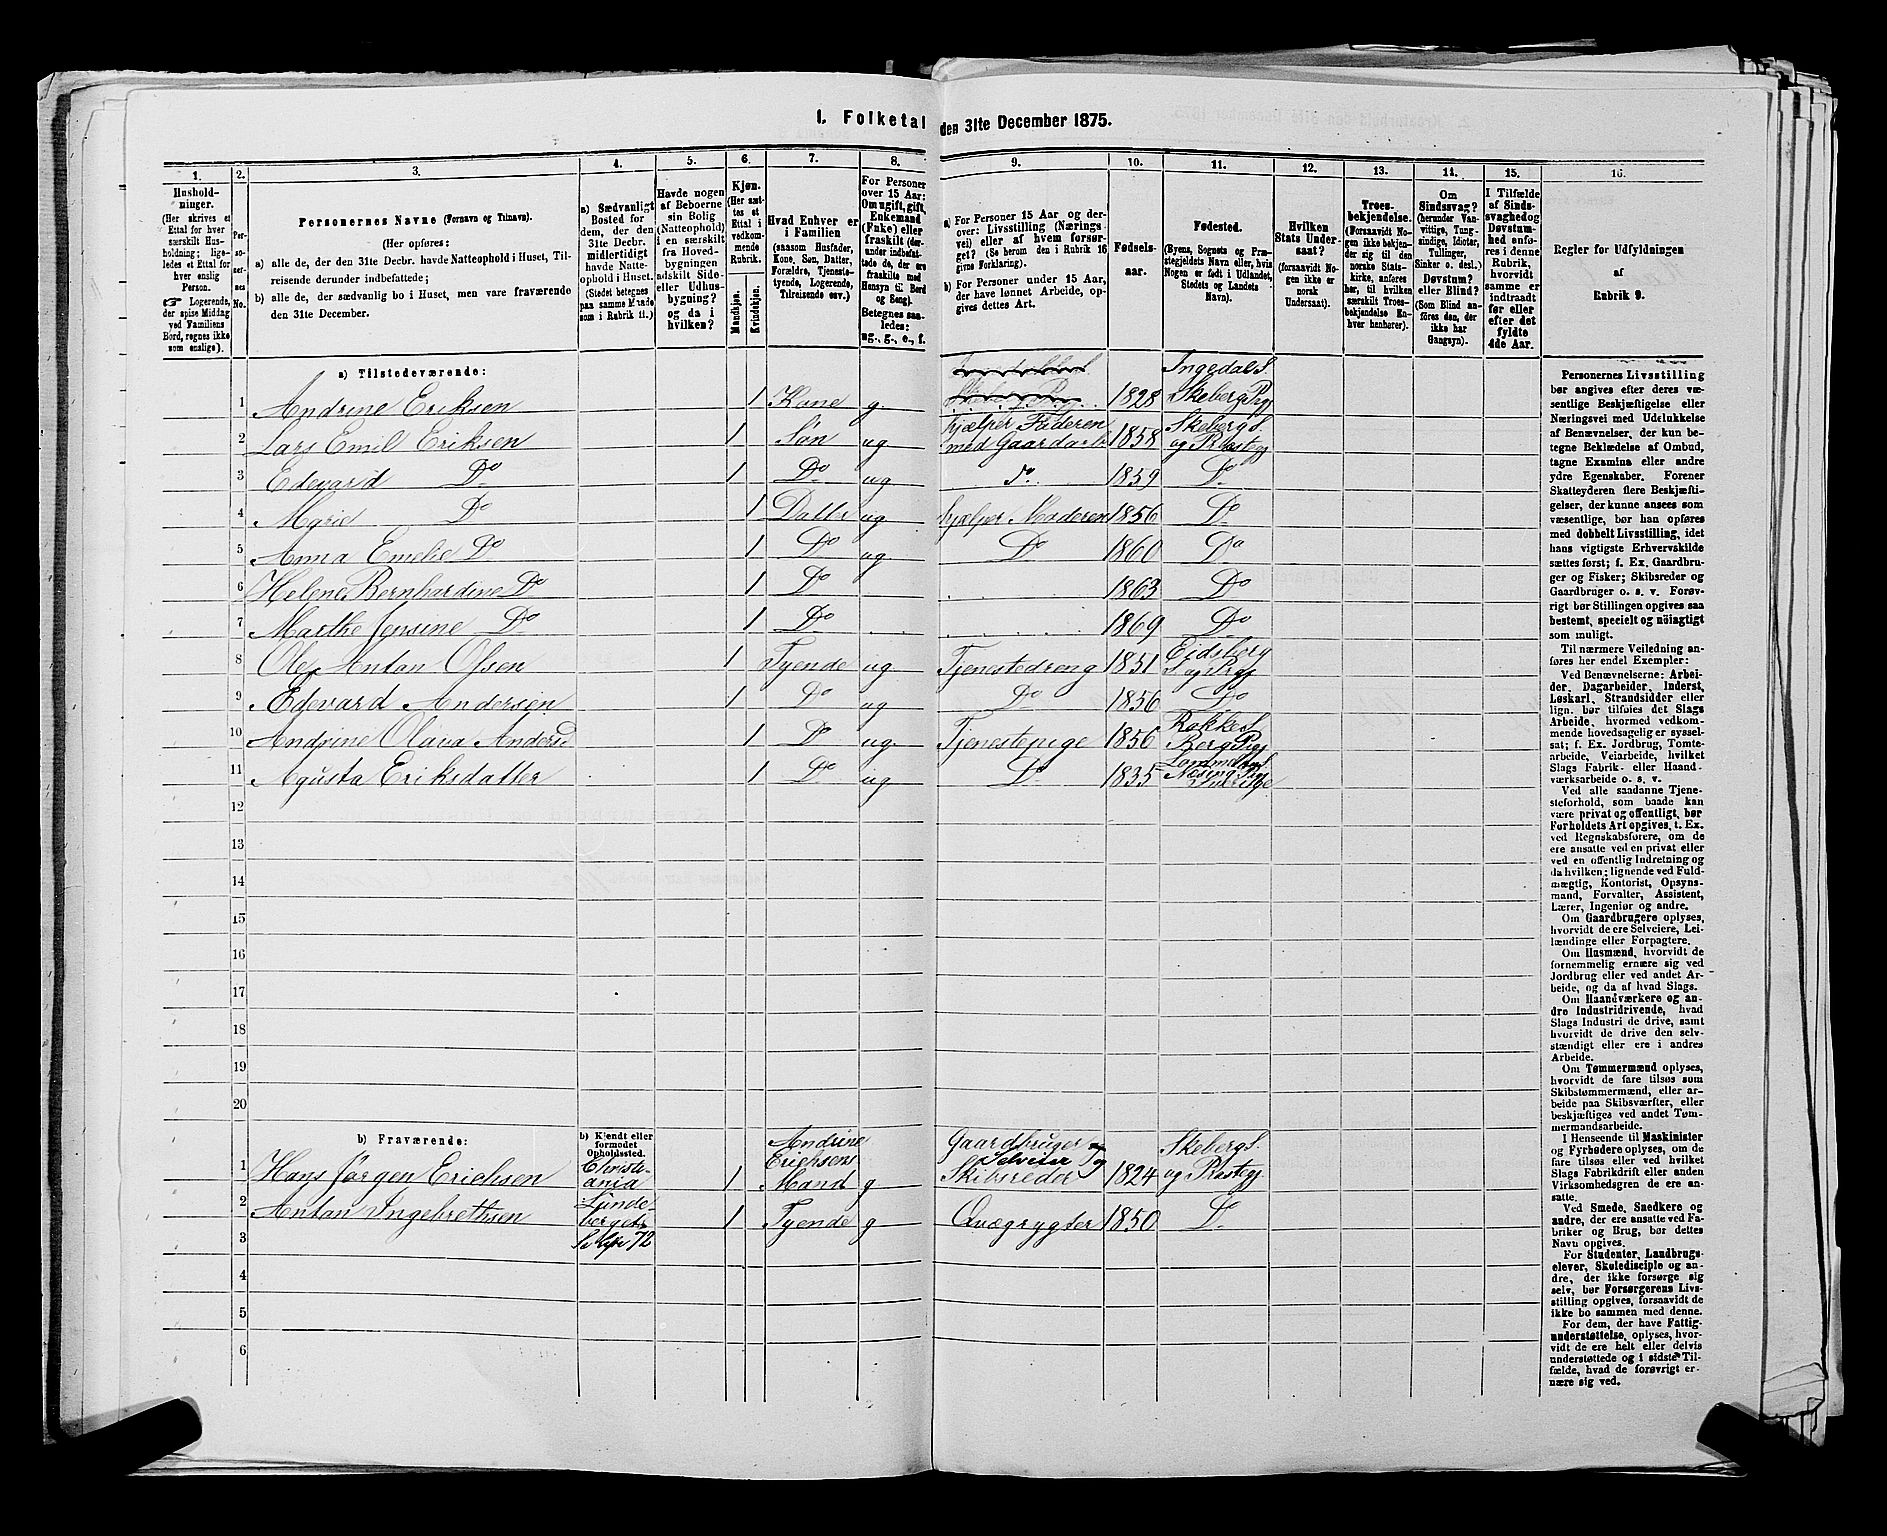 I. Folketal den 31te December 1875.
1. 2. 3. 4. 5. 6. 7. 8. 9. 10. 11. 12. 13. 14. 15. 16.
Husholdninger.
(Her skrives et
Ettal for hver
særskilt Husholdning;
ligeledes
et Ettal for
hver enslig
Person.
☞ Logerende,
der spise Middag
ved Familiens
Bord, regnes ikke
som enslige).
Personernes No.
Personernes Navne (Fornavn og Tilnavn).
(Her opføres:
a) alle de, der den 31te Decbr. havde Natteophold i Huset, Tilreisende
derunder indbefattede;
b) alle de, der sædvanlig bo i Huset, men vare fraværende
den 31te December.
a) Sædvanligt
Bosted for
dem, der den
31te Decbr.
midlertidigt
havde Natteophold
i Huset.
(Stedet betegnes
paa samme Maade
som i Rubrik 11.)
Havde nogen
af Beboerne
sin Bolig
(Natteophold)
i en særskilt
fra Hovedbygningen
adskilt Side-
eller Udhusbygning?
og da i
hvilken?
Kjøn.
(Her sættes
et
Ettal i
vedkommende
Rubrik.
Mandkjøn.
Kvindekjøn.
Hvad Enhver er
i Familien
(saasom Husfader,
Kone, Søn, Datter,
Forældre, Tjenestetyende,
Logerende,
Tilreisende osv.)
For Personer
over 15 Aar:
Om ugift, gift,
Enkemand
(Enke) eller
fraskilt (derunder
indbefattede
de, der ere
fraskilte med
Hensyn til Bord
og Seng).
Betegnes saaledes:
ug., g., e., f.
a) For Personer 15 Aar og derover:
Livsstilling (Næringsvei)
eller af hvem forsørget?
(Se herom den i Rubrik 16
givne Forklaring).
b) For Personer under 15 Aar,
der have lønnet Arbeide, opgives
dettes Art.
Fødselsaar.
Fødested.
(Byens, Sognets og Præstegjeldets
Navn eller, hvis
Nogen er født i Udlandet,
Stedets og Landets
Navn).
Hvilken
Stats Undersaat?
(forsaavidt Nogen
ikke er
norsk
Undersaat).
Troesbekjendelse.
(Forsaavidt Nogen
ikke bekjender
sig til den
norske Statskirke,
anføres
her, til hvilken
særskilt Troesbekjendelse
Enhver
henhører).
Om
Sindssvag?
(herunder Vanvittige,
Tungsindige,
Idioter,
Tullinger,
Sinker o. desl.)
Døvstum?
eller Blind?
(Som Blind anføres
den, der
ikke har
Gangsyn).
I Tilfælde
af Sindssvaghed
og
Døvstumhed
anføres
i denne
Rubrik,
hvorvidt
samme er
indtraadt
før eller
efter det
fyldte
4de Aar.
Regler for Udfyldningen
af
Rubrik 9.
a) Tilstedeværende:
1 Andrine Eriksen 1 Kone g. 1828 Ingedals S. Skeberg Pgj
2 Lars Emil Eriksen 1 Søn ug hjælper Faderen med Gaardarb 1858 Skebergs. og Præstgj
3 Edevard Do 1 Do ug do. 1859 Do
4 Marie Do 1 Datter ug hjælper Moderen 1856 Do
5 Anna Emelie Do 1 Do ug Do 1860 Do
6 Helene Bernhardine Do 1 Do 1863 Do
7 Marthe Jensine Do 1 Do 1869 Do
8 Ole Antan Olsen 1 Tyende ug Tjenestedreng 1851 Eidsberg S. og Prgj
9 Edevard Andersen 1 Do ug Do 1856 Do
10 Andrine Olava Andersd 1 Do ug Tjenestepige 1856 Rokke S. Berg Prgj
11 Agusta Eriksdatter 1 Do ug Do 1835 Sverige
12
13
14
15
16
17
18
19
20
b) Fraværende:
b) Kjendt eller
formodet
Opholdssted.
1 Hans Jørgen Erichsen Christiania 1 Andrine Erichsens Mand g Gaardbruger Selveier og Skibsreder 1824 Skebergs. og Præstgj.
2 Antan Ingebrethsen 1 Tyende g Qvægrygter 1850 Do
3
4
5
6
Personernes Livsstilling
bør angives efter deres væsentlige
Beskjæftigelse eller
Næringsvei med Udelukkelse
af Benævnelser, der kun betegne
Beklædelse af Ombud,
tagne Examina eller andre
ydre Egenskaber. Forener
Skatteyderen flere Beskjæftigelser,
der kunne ansees som
væsentlige, bør han opføres
med dobbelt Livsstilling, idet
hans vigtigste Erhvervskilde
sættes først; f. Ex. Gaardbruger
og Fisker; Skibsreder og
Gaardbruger o. s. v. Forøvrigt
bør Stillingen opgives saa
bestemt, specielt og nöiagtigt
som muligt.
Til nærmere Veiledning anføres
her endel Exempler:
Ved Benævnelserne: Arbeider,
Dagarbeider, Inderst,
Løskarl, Strandsidder eller
lign. bør tilføies det Slags
Arbeide, hvormed vedkommende
hovedsagelig er sysselsat;
f. Ex. Jordbrug, Tomtearbeide,
Veiarbeide, hvilket
Slags Fabrik- eller Haandværksarbeide
o. s. v.
Ved alle saadanne Tjenesteforhold,
som baade kan
være privat og offentligt, bør
Forholdets Art opgives, t. Ex.
ved Regnskabsførere, om de
ere ansatte ved en privat eller
ved en offentlig Indretning og
da hvilken; lignende ved Fuldmægtig,
Kontorist, Opsynsmand,
Forvalter, Assistent,
Lærer, Ingeniør og andre.
Om Gaardbrugere oplyses,
hvorvidt de ere Selveiere, Leilændinge
eller Forpagtere.
Om Husmænd, hvorvidt de
fornemmelig ernære sig ved
Jordbrug eller ved andet Arbeide,
og da af hvad Slags.
Om Haandværkere og andre
Industridrivende, hvad
Slags Industri de drive, samt
hvorvidt de drive den selvstændigt
eller ere i andres
Arbeide.
Om Tømmermænd oplyses,
hvorvidt de fare tilsøs som
Skibstømmermænd, eller arbeide
paa Skibsværfter, eller
beskjæftiges ved andet Tømmermandsarbeide.
I Henseende til Maskinister
og Fyrbødere oplyses, om de
fare tilsøs eller ved hvilket
Slags Fabrikdrift eller anden
Virksomhedsgren de ere ansatte.
Ved Smede, Snedkere og
andre, der ere ansatte ved Fabriker
og Brug, bør dettes
Navn opgives.
For Studenter, Landbrugselever,
Skoledisciple og andre,
der ikke forsørge sig
selv, bør Forsørgerens Livsstilling
opgives, forsaavidt de
ikke bo sammen med denne.
For dem, der have Fattigunderstøttelse,
oplyses, hvorvidt
de ere helt eller delvis
understøttede og i sidste Tilfælde,
hvad de forøvrigt ernære
sig ved.